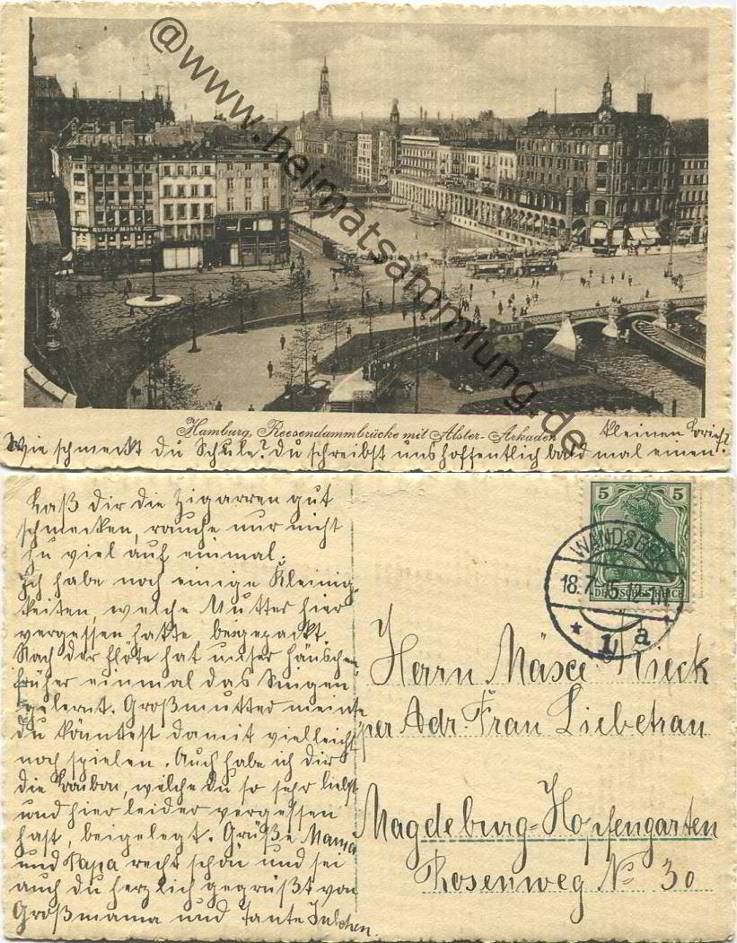 @www.heimatsammlung.de
RUDOLF MOSSE
Hamburg, Reesendammbrücke mit Alster-Arkaden
kleinen
Wie schmeckt du Schule? du schreibst uns hoffentlich bald mal einen
Laß dir die Zigarren gut
schmecken, rauche nur nicht
zu viel auf einmal.
Ich habe noch einige Kleinig-
keiten, welche Mutter hier
vergessen hatte beigepackt.
Nach der Flöte hat unser Hänschen
früher einmal das Singen
gelernt. Großmutter meinte
du könntest damit vielleicht
noch spielen. Auch habe ich dir
die welche du so sehr liebst
und hier leider vergessen
hast, beigelegt. Grüße Mama
und Papa recht schön und sei
auch du herzlich gegrüßt von
Großmama und Tante
5 5
DEUTSCHES REICH
WANDSBEK
18.7.15.12-1N
* 1 a *
Herrn Kieck
per Adr. Frau Liebetrau
Magdeburg-Hopfengarten
Rosenweg No 30